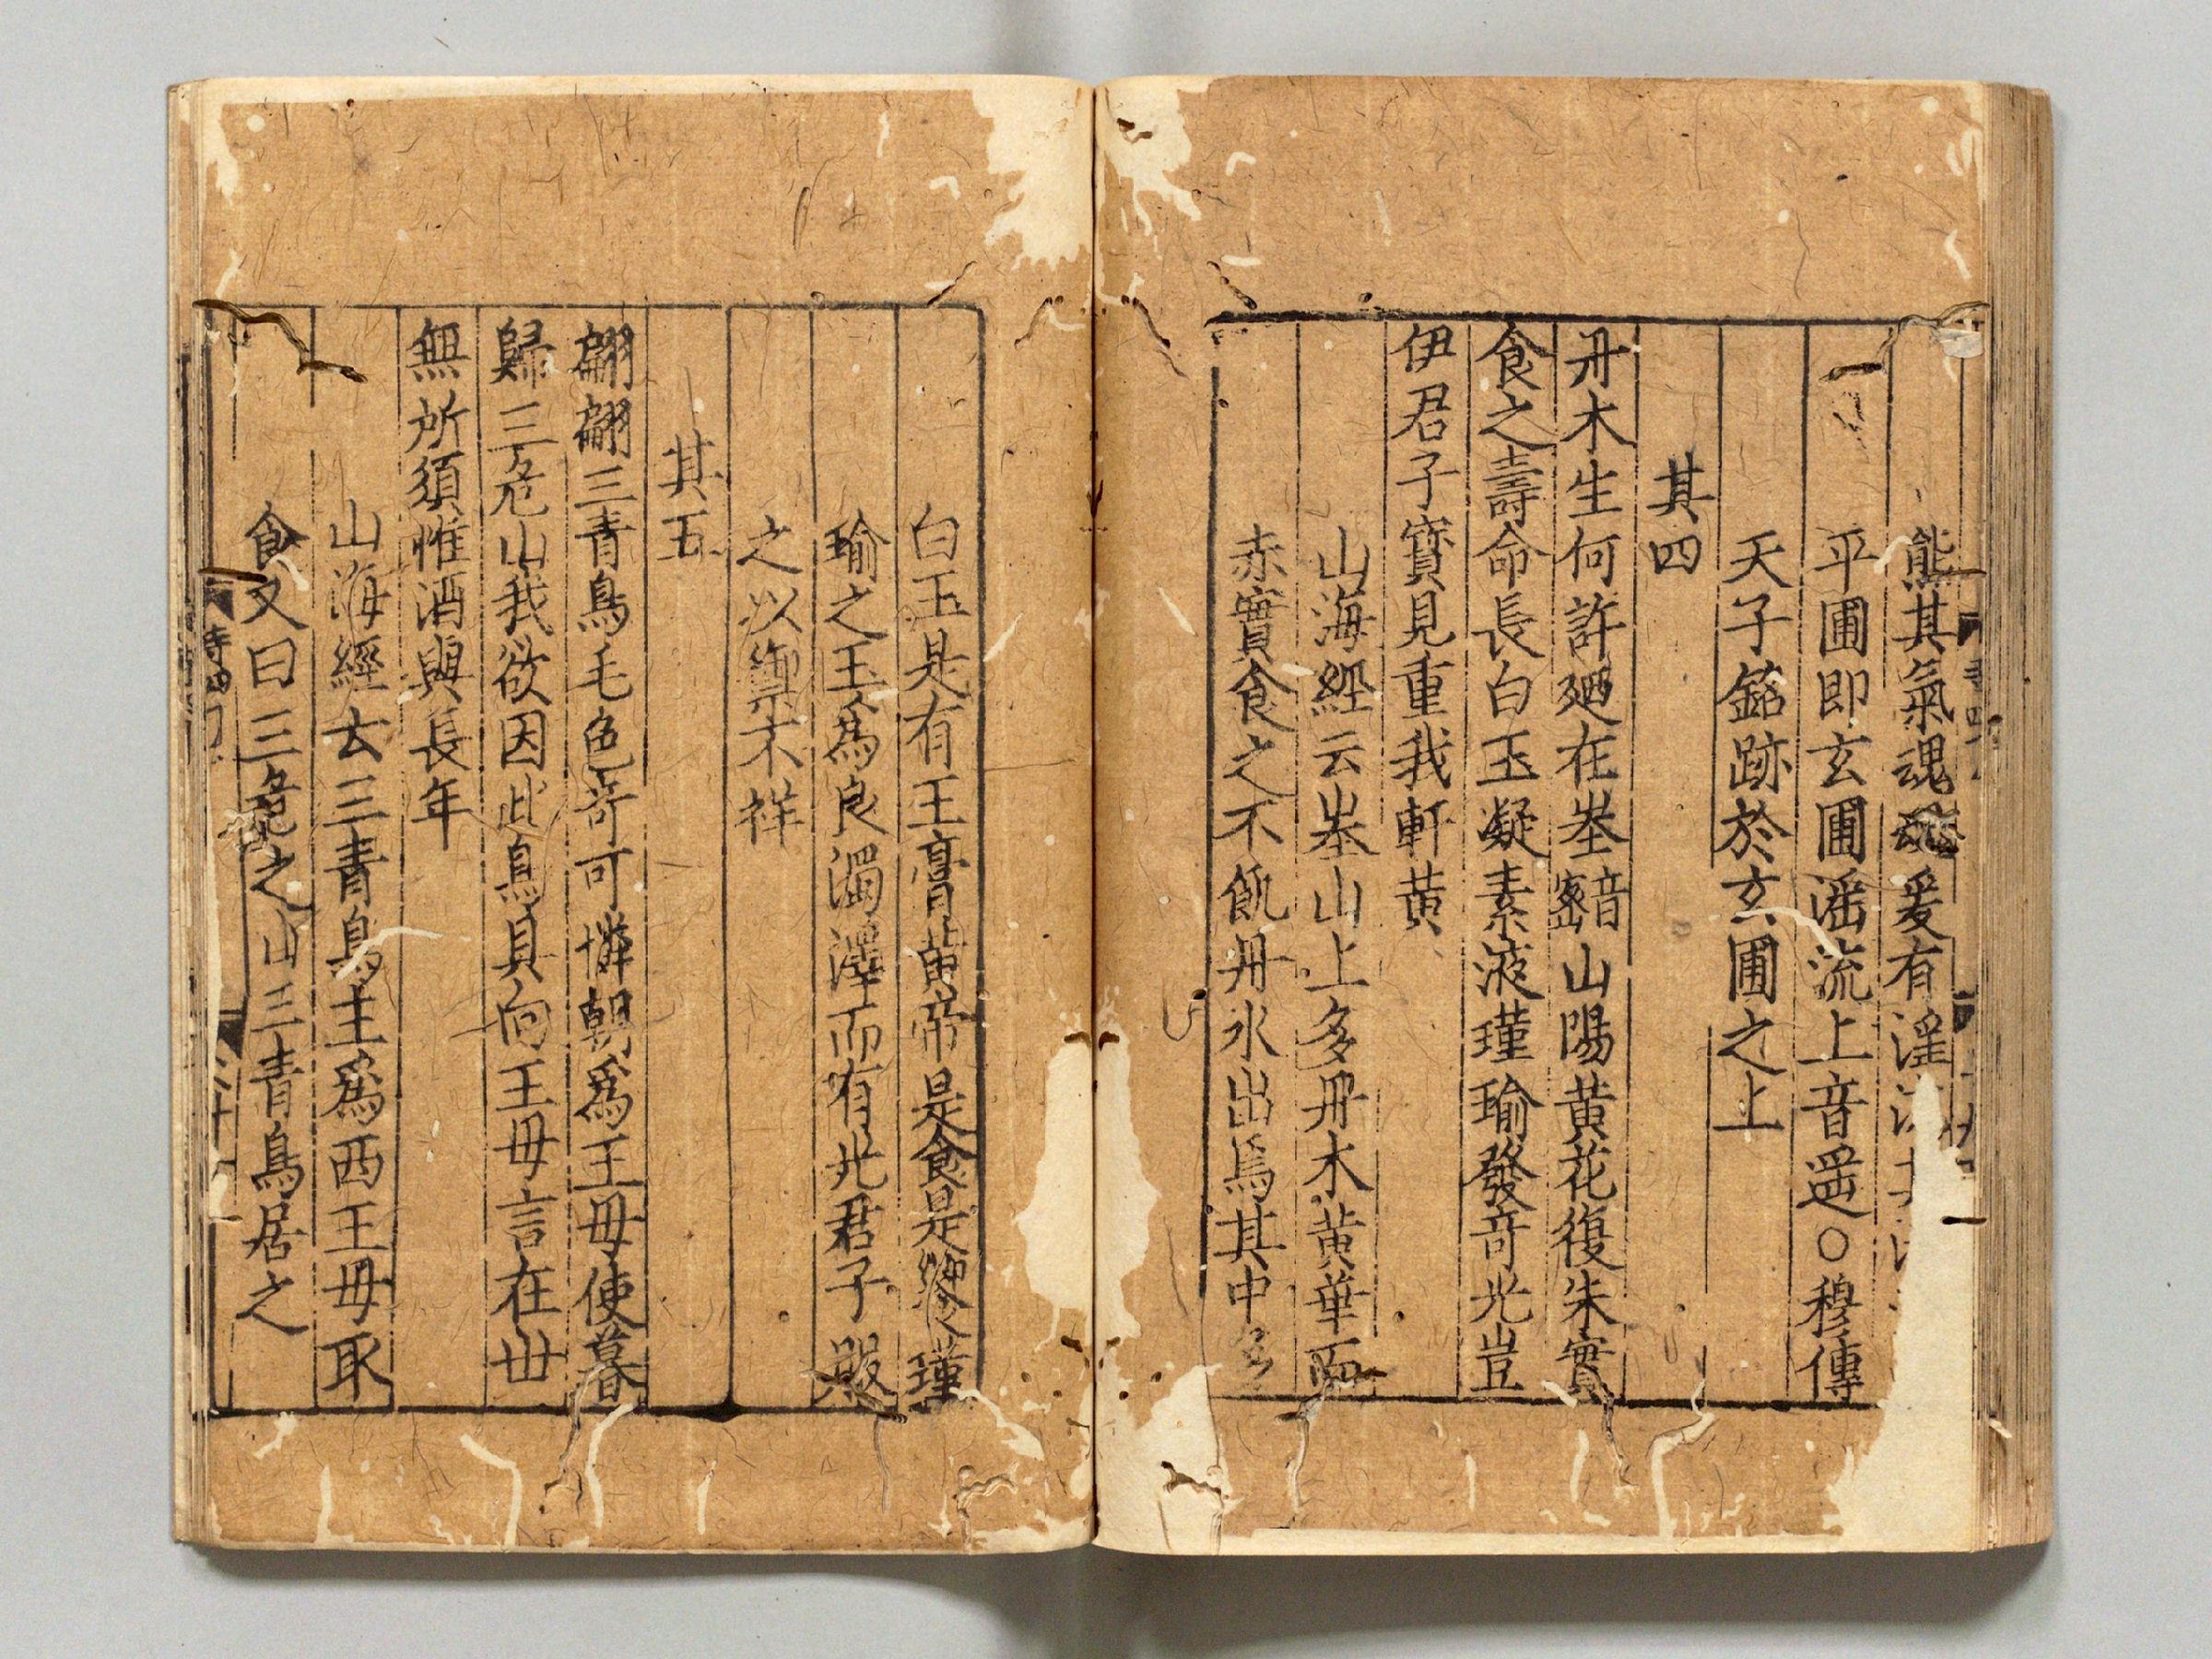 熊其氣魂魂爰有滛
平圃即玄圃滛流上音遥○穆傳
天子銘跡於玄圃之上
其四
丹木生何許廼在峚音密山陽黄花復朱實
食之壽命長白玉凝素液瑾瑜發竒光豈
伊君子寳見重我軒黄
山海經云峚山上多丹木黄華而
赤實食之不飢丹水出焉其中多
白玉是有王膏黄帝是食是饗瑾
瑜之玉爲良濁澤而有光君子服
之以禦不祥
其五
翩翩三青鳥毛色竒可憐朝爲王母使暮
歸三危山我欲因此鳥具向王母言在世
無所須惟酒與長年
山海經云三青鳥主爲西王母取
食又曰三危之山三青鳥居之